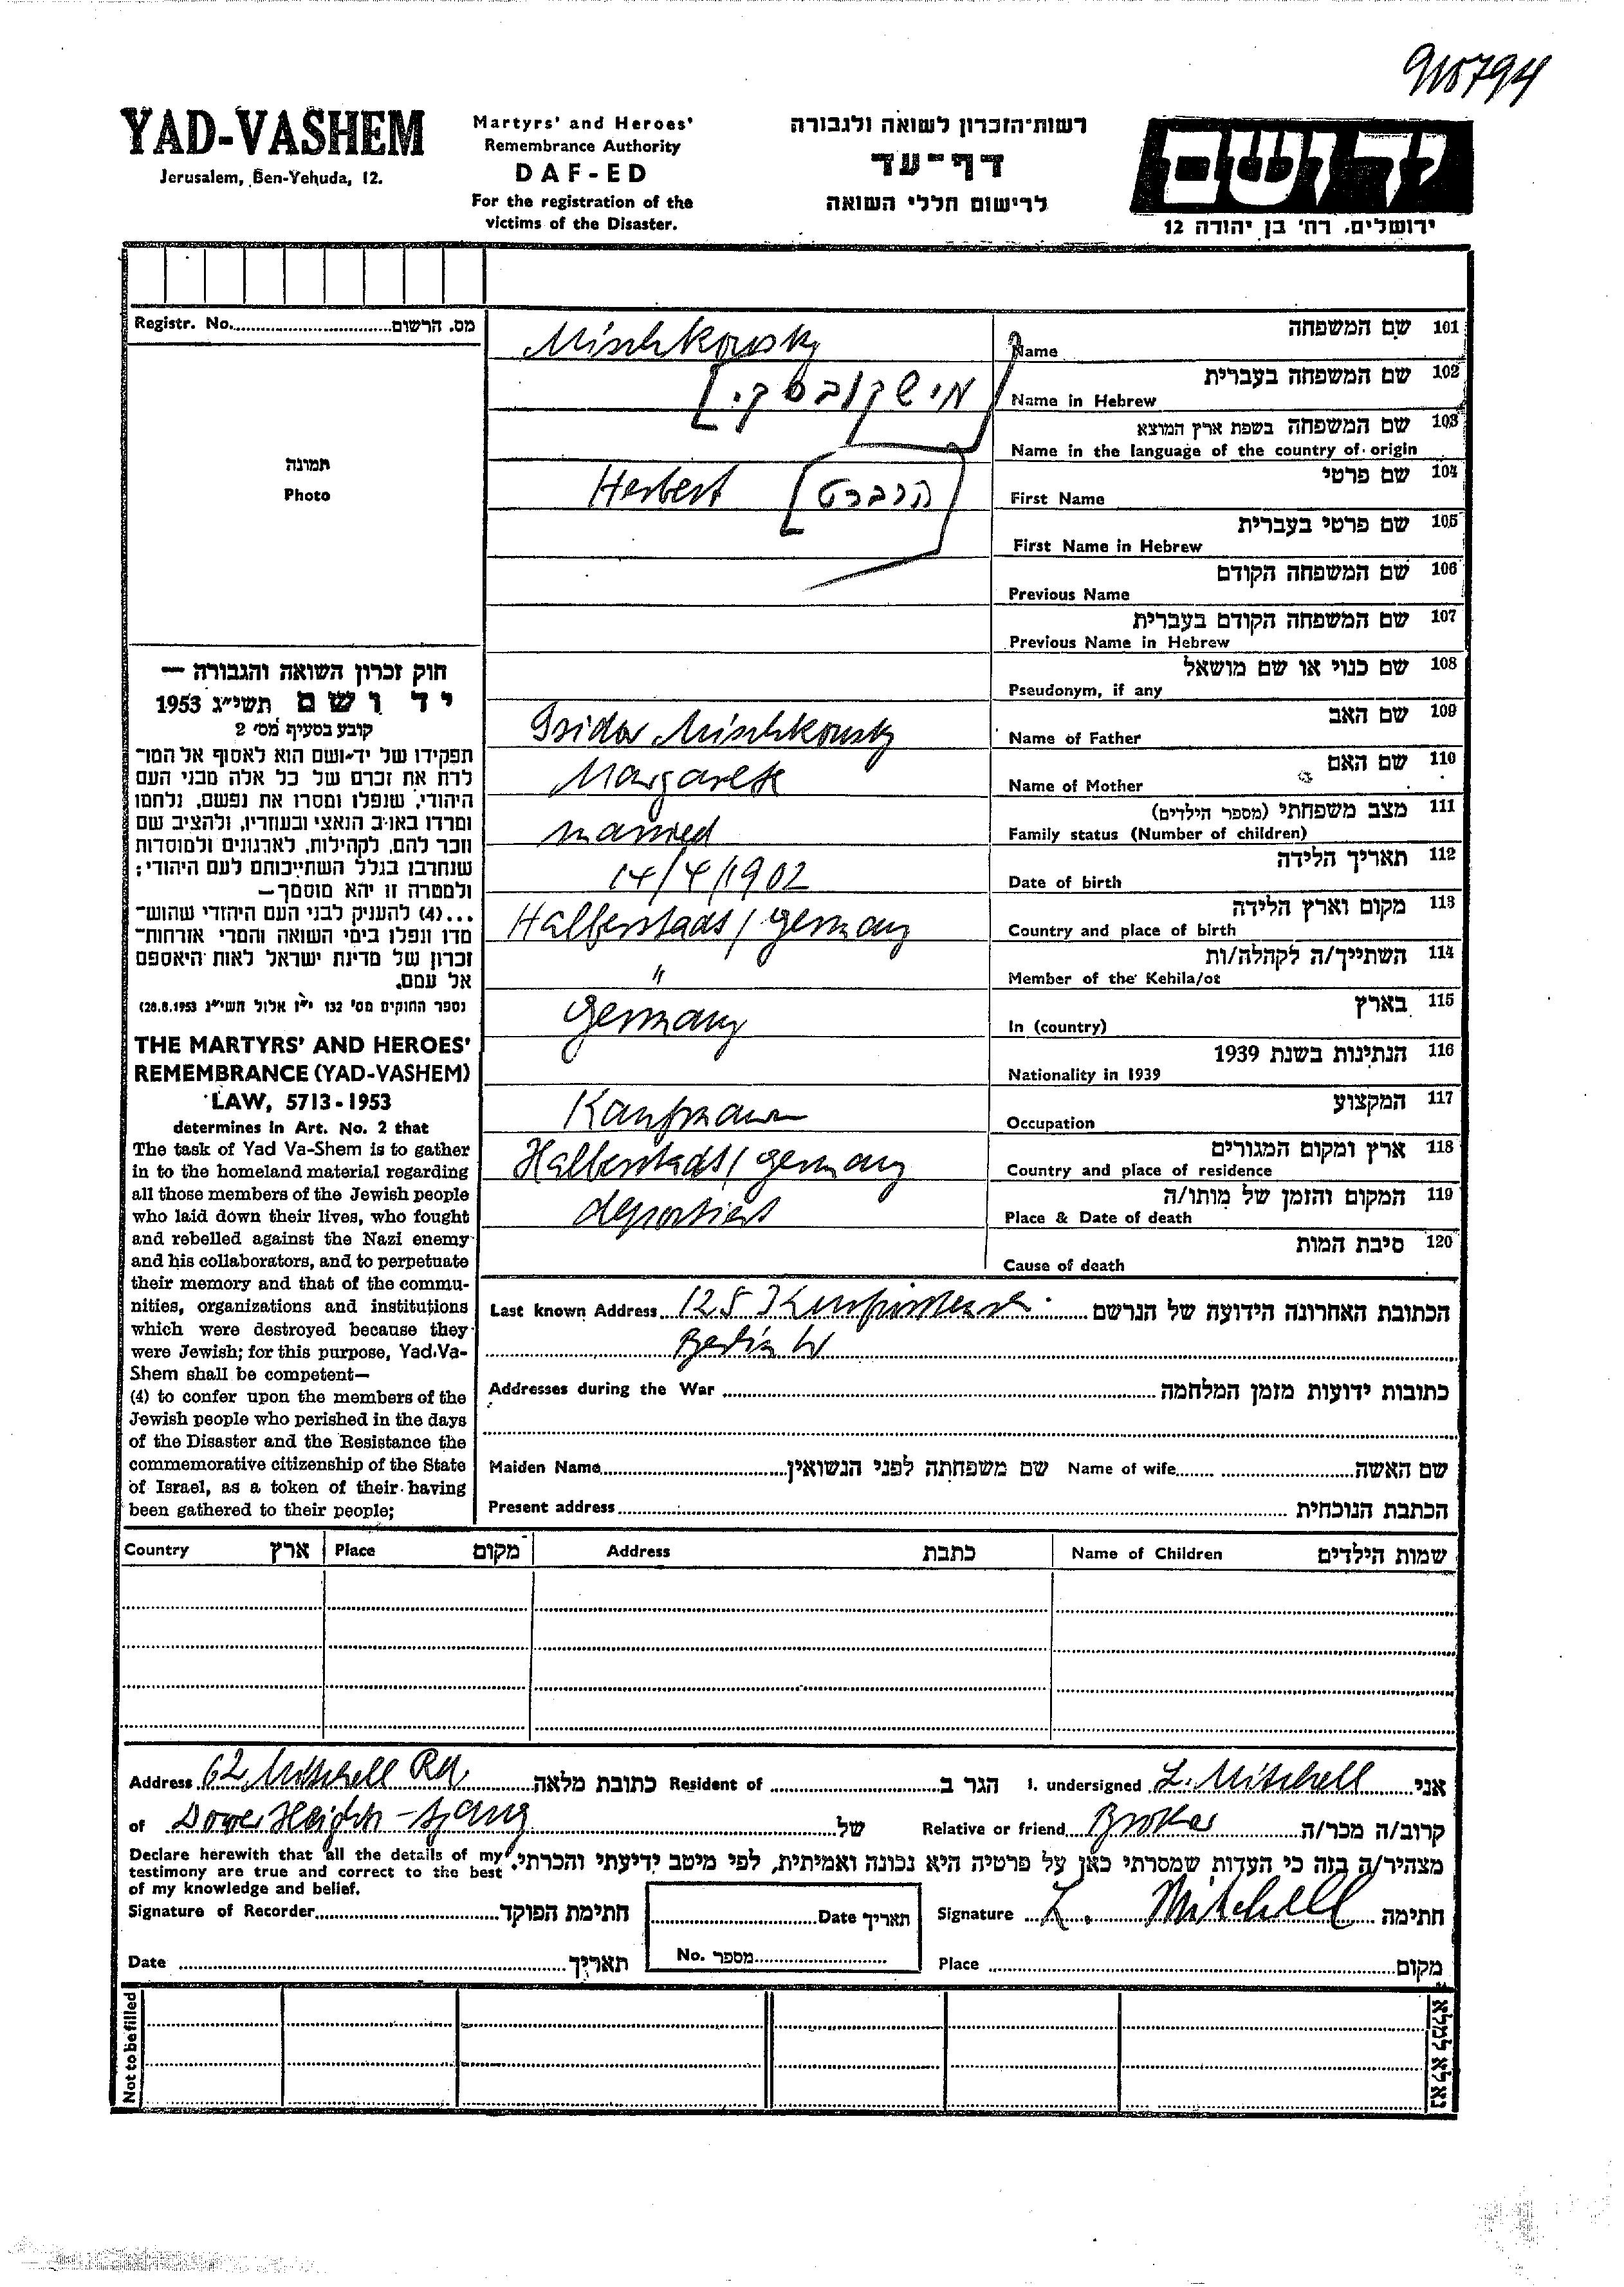 910794
YAD-VASHEM
Jerusalem, Ben-Yehuda, 12.
Martyrs' and Heroes'
Remembrance Authority
DAF-ED
For the registration of the
victims of the Disaster.
רשות-הזכרון לשואה ולגבורה
דף-עד
לרישום חללי השואה
יד ושם
ירושלים, רח' בן יהודה 12
Registr. No. מס. הרשום
תמונה
Photo
חוק זכרון השואה והגבורה —
יד ושם תשי״ג 1953
קובע בסעיף מס' 2
תפקידו של יד-ושם הוא לאסוף אל המו-
לדת את זכרם של כל אלה מבני העם
היהודי, שנפלו ומסרו את נפשם, נלחמו
ומרדו באויב הנאצי ובעוזריו, ולהציב שם
וזכר להם, לקהילות, לארגונים ולמוסדות
שנחרבו בגלל השתייכותם לעם היהודי;
ולמטרה זו יהא מוסמך—
...(4) להעניק לבני העם היהודי שהוש-
מדו ונפלו בימי השואה והמרי אזרחות-
זכרון של מדינת ישראל לאות היאספם
אל עמם.
(ספר החוקים מס' 132 י״ז אלול תשי״ג 28.8.1953)
THE MARTYRS' AND HEROES'
REMEMBRANCE (YAD-VASHEM)
LAW, 5713-1953
determines in Art. No. 2 that
The task of Yad Va-Shem is to gather
in to the homeland material regarding
all those members of the Jewish people
who laid down their lives, who fought
and rebelled against the Nazi enemy
and his collaborators, and to perpetuate
their memory and that of the commu-
nities, organizations and institutions
which were destroyed because they
were Jewish; for this purpose, Yad Va-
Shem shall be competent—
(4) to confer upon the members of the
Jewish people who perished in the days
of the Disaster and the Resistance the
commemorative citizenship of the State
of Israel, as a token of their having
been gathered to their people;
Mischkowsky שם המשפחה 101
Name
[מישקובסקי שם המשפחה בעברית 102
Name in Hebrew
שם המשפחה בשפת ארץ המוצא 103
Name in the language of the country of origin
Herbert [הרברט] שם פרטי 104
First Name
שם פרטי בעברית 105
First Name in Hebrew
שם המשפחה הקודם 106
Previous Name
שם המשפחה הקודם בעברית 107
Previous Name in Hebrew
שם כנוי או שם מושאל 108
Pseudonym, if any
Isidor Mischkowsky שם האב 109
Name of Father
Margarete שם האם 110
Name of Mother
married מצב משפחתי (מספר הילדים) 111
Family status (Number of children)
14/4/1902 תאריך הלידה 112
Date of birth
Halberstadt / Germany מקום וארץ הלידה 113
Country and place of birth
" השתייך/ה לקהלה/ות 114
Member of the Kehila/ot
Germany בארץ 115
In (country)
הנתינות בשנת 1939 116
Nationality in 1939
Kaufmann המקצוע 117
Occupation
Halberstadt / Germany ארץ ומקום המגורים 118
Country and place of residence
deportiert המקום והזמן של מותו/ה 119
Place & Date of death
סיבת המות 120
Cause of death
Last known Address 125 הכתובת האחרונה הידועה של הנרשם
Berlin W
Addresses during the War כתובות ידועות מזמן המלחמה
Maiden Name שם משפחתה לפני הנשואין Name of wife שם האשה
Present address הכתבת הנוכחית
Country ארץ Place מקום Address כתבת Name of Children שמות הילדים
Address 62 Mitchell Rd. כתובת מלאה Resident of הגר ב I. undersigned L. Mitchell אני
of Dover Heights - Sydney של Relative or friend Brother קרוב/ה מכר/ה
Declare herewith that all the details of my
testimony are true and correct to the best
of my knowledge and belief.
מצהיר/ה בזה כי העדות שמסרתי כאן על פרטיה היא נכונה ואמיתית, לפי מיטב ידיעתי והכרתי.
Signature of Recorder חתימת הפוקד Date תאריך Signature L. Mitchell חתימה
Date תאריך No. מספר Place מקום
Not to be filled
נא לא למלא